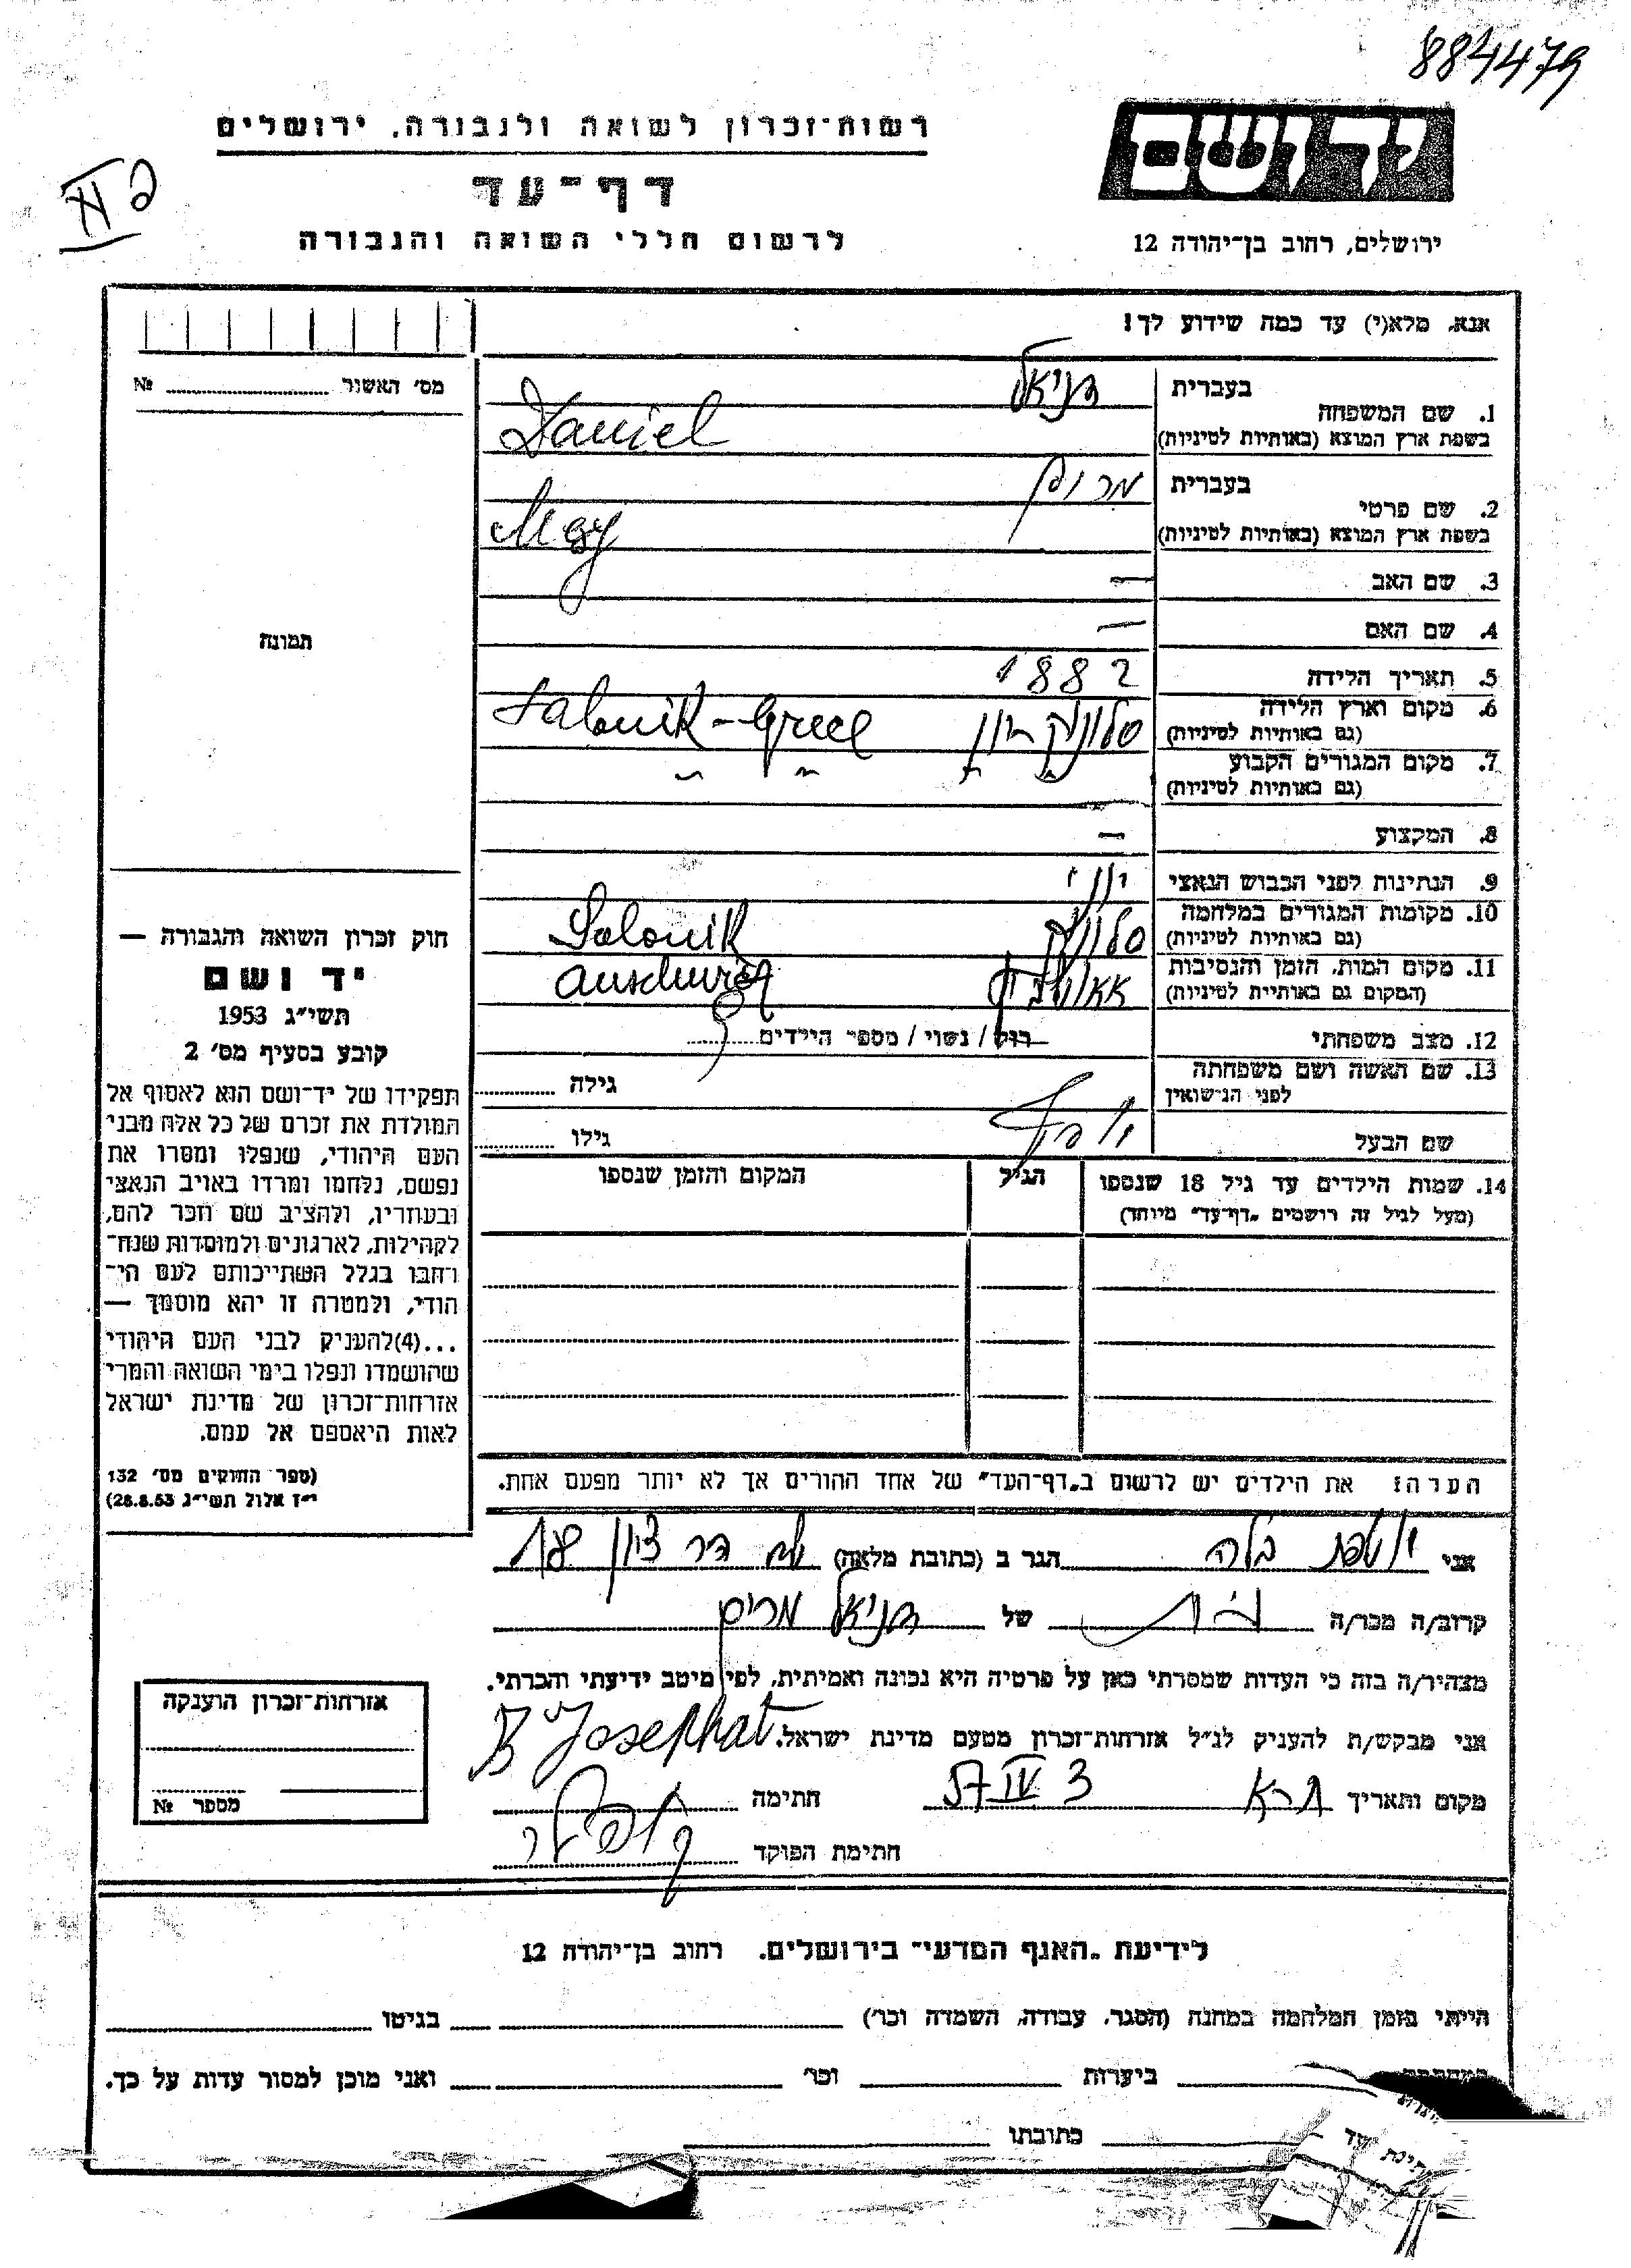 884479
רשות-זכרון לשואה ולגבורה. ירושלים
יד ושם
דף-עד
לרשום חללי השואה והגבורה
ירושלים, רחוב בן-יהודה 12
אנא, מלא(י) עד כמה שידוע לך!
מס' האשור №
תמונה
בעברית דניאל
1. שם המשפחה
בשפת ארץ המוצא (באותיות לטיניות) Daniel
בעברית מרים
2. שם פרטי
בשפת ארץ המוצא (באותיות לטיניות)
3. שם האב —
4. שם האם —
5. תאריך הלידה 1882
6. מקום וארץ הלידה סלוניק יון Salonik-Greec
(גם באותיות לטיניות)
7. מקום המגורים הקבוע
(גם באותיות לטיניות)
8. המקצוע —
9. הנתינות לפני הכבוש הנאצי יוני
10. מקומות המגורים במלחמה סלוניק Salonik
(גם באותיות לטיניות)
11. מקום המות, הזמן והנסיבות
(המקום גם באותיות לטיניות)
12. מצב משפחתי רוק / נשוי / מספר הילדים
13. שם האשה ושם משפחתה גילה
לפני הנישואין
שם הבעל גילו
14. שמות הילדים עד גיל 18 שנספו הגיל המקום והזמן שנספו
(מעל לגיל זה רושמים "דף-עד" מיוחד)
הערה: את הילדים יש לרשום ב"דף-העד" של אחד ההורים אך לא יותר מפעם אחת.
חוק זכרון השואה והגבורה —
יד ושם
תשי"ג 1953
קובע בסעיף מס' 2
תפקידו של יד-ושם הוא לאסוף אל
המולדת את זכרם של כל אלה מבני
העם היהודי, שנפלו ומסרו את
נפשם, נלחמו ומרדו באויב הנאצי
ובעוזריו, ולהציב שם וזכר להם,
לקהילות, לארגונים ולמוסדות שנח-
רחבו בגלל השתייכותם לעם הי-
הודי, ולמטרה זו יהא מוסמך —
...(4)להעניק לבני העם היהודי
שהושמדו ונפלו בימי השואה והמרי
אזרחות-זכרון של מדינת ישראל
לאות היאספם אל עמם.
(ספר החוקים מס' 132
י"ז אלול תשי"ג 28.8.53)
אני הגר ב (כתובת מלאה)
קרוב/ה מכר/ה של דניאל מרים
מצהיר/ה בזה כי העדות שמסרתי כאן על פרטיה היא נכונה ואמיתית, לפי מיטב ידיעתי והכרתי.
אני מבקש/ת להעניק לנ"ל אזרחות-זכרון מטעם מדינת ישראל. B Josephat
מקום ותאריך 3 IV 57 חתימה
חתימת הפוקד
אזרחות-זכרון הוענקה
מספר №
לידיעת "האגף המדעי" בירושלים. רחוב בן-יהודה 12
הייתי בזמן המלחמה במחנה (הסגר, עבודה, השמדה וכו') בגיטו
ביערות וכו' ואני מוכן למסור עדות על כך.
כתובתו